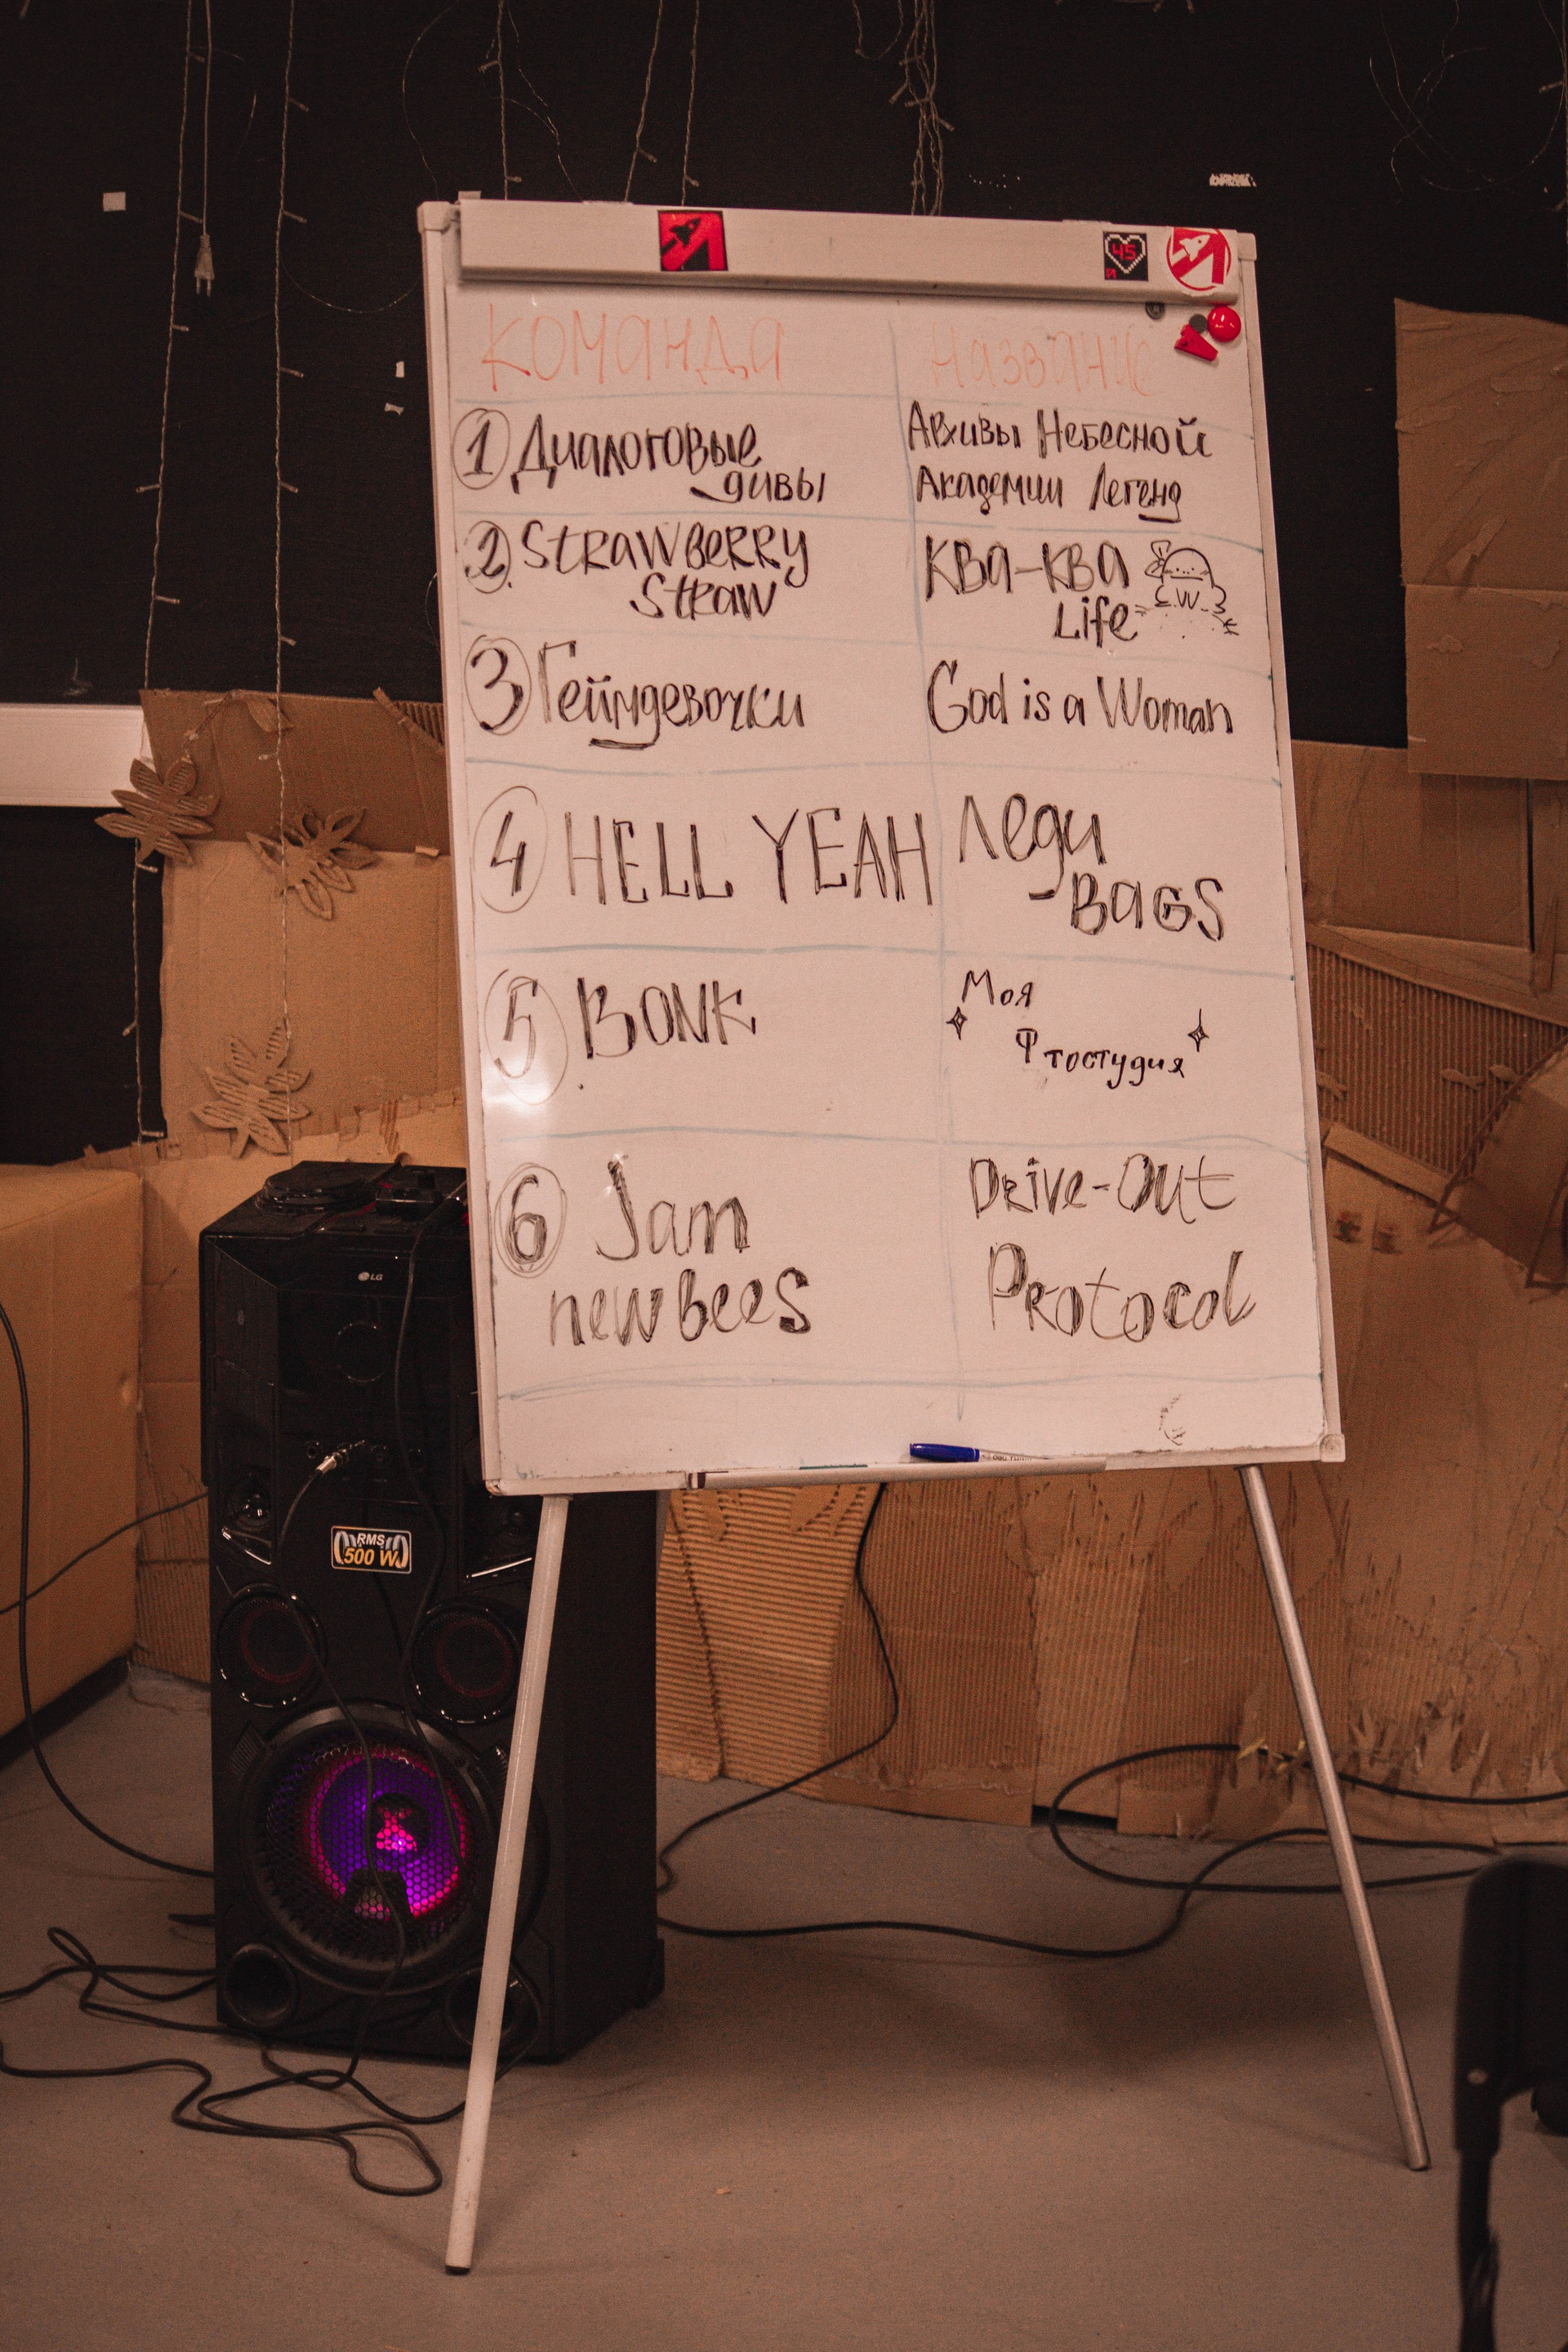 45
Команда Название
1 Диалоговые дивы
Архивы Небесной
Академии Легенд
2. Strawberry
Straw
Ква-ква
Life
3 Геймдевочки
God is a Woman
4 HELL YEAH
Леди
-BAGS
5 BONK
Моя
Фтостудия
6 Jam
newbees
Drive-Out
Protocol
LG
RMS
500 W